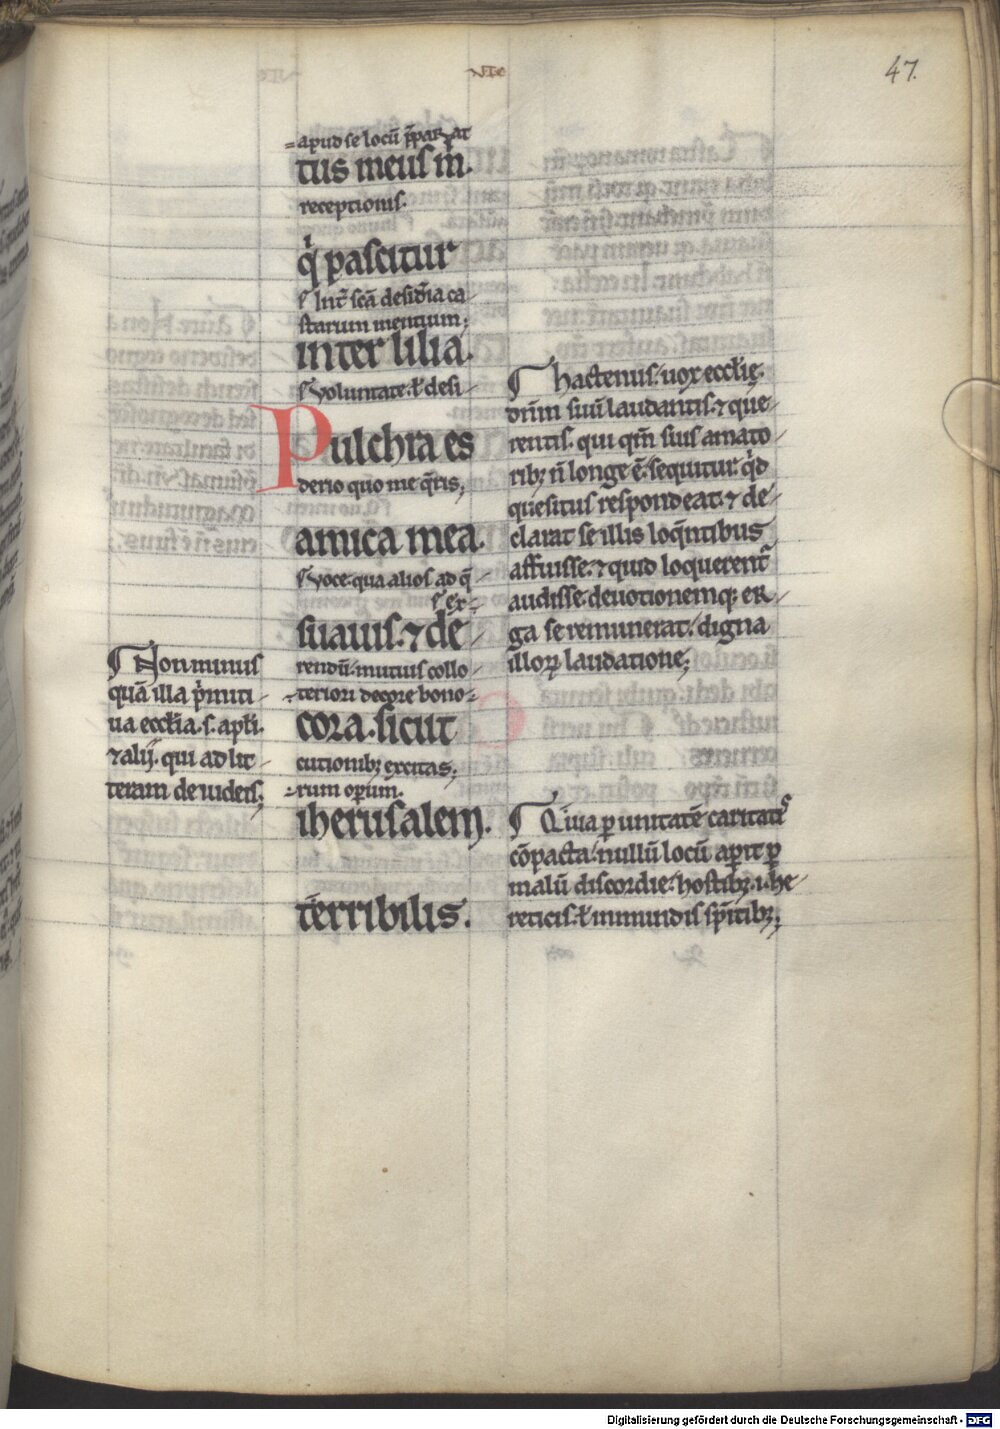 47.
VI
=apud se locū p̄parat
tus meus m̄.
receptionis.
q̍ pascitur
Int̄ scā desid̄ia ca
starum mentium;
inter lilia.
voluntate. ł desi
Pulchra es
derio quo me q̄ris;
amica mea.
voce qua alios ad q̄
ex
suauis. ⁊ de
rendū. mutuis collo
teriori decore bono
cora. sicut
cutionibꝫ excitas;
rum operum.
iherusalem.
t̄rribilis.
Non minus
quā illa p̍miti
ua eccl̄ia. s. apl̄i.
⁊ alij. qui ad lit
teram de uideis;
hactenus. uox eccl̄ię.
dn̄m suū laudantis. ⁊ que
rentis. qui qm̄ suis amato
ribꝫ n̄ longe ē. sequitur. q̍d
quesitus respondeat. ⁊ de
clarat se illis loq̄ntibus
affuisse. ⁊ quid loquerent̄
audisse. deuotionemqꝫ er
ga se remunerat. digna
illoꝝ laudatione;
Quia ꝑ unitatē caritatis
cōpacta. nullū locū aperit ꝑ
malū discordie. hostibꝫ. i. he
reticis. ł inmundis sp̄itibꝫ;
Digitalisierung gefördert durch die Deutsche Forschungsgemeinschaft - DFG